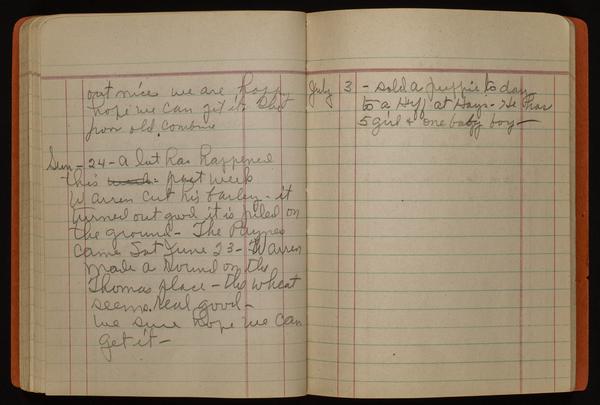 out nice we are happy
hope we can get it cut
poor old combine
Sun - 24 - a lot has happened
this week past week
Warren cut his barley - it
turned out good it is piled on
the ground - The Paynes
came Sat June 23 - Warren
made a Round on the
Thomas place - the wheat
seems real good -
we sure hope we can
get it -
July 3 - sold a puppie to day
to a at Hays - He has
5 girl & one baby boy -